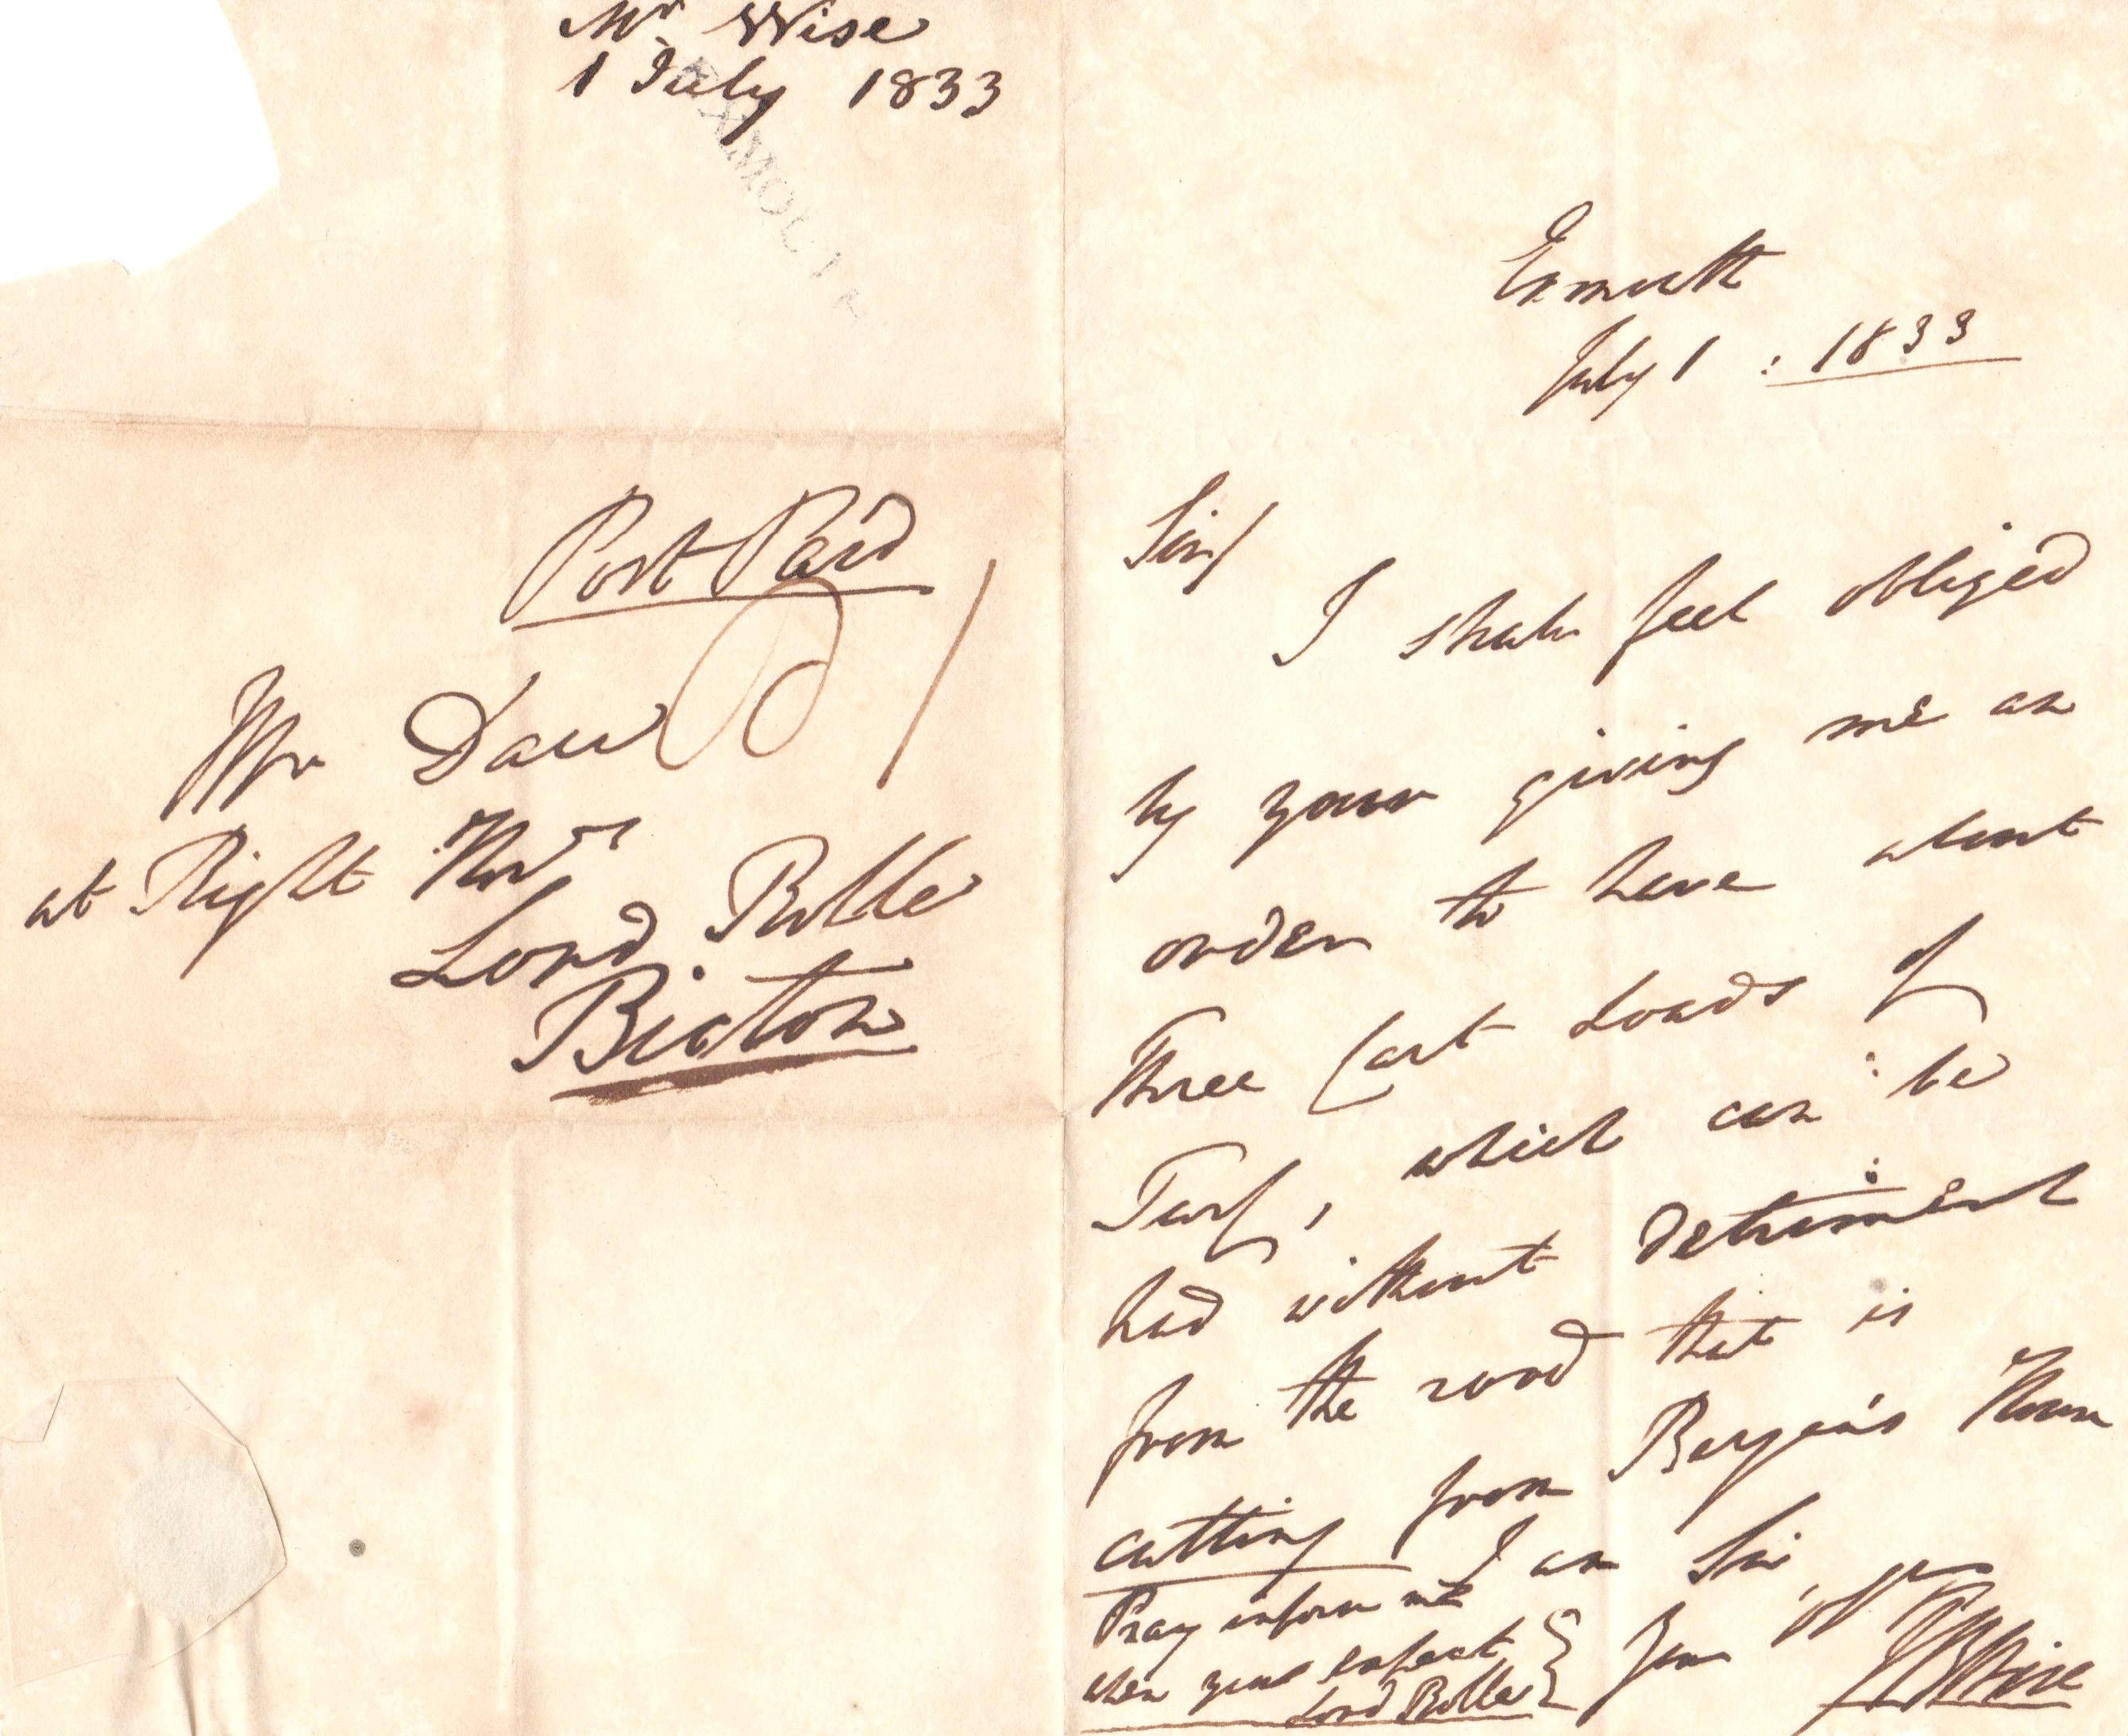 Mr. Wise
1 July 1833
EXMOUTH
Post Paid
Mr Daw
at Right Honble
Lord Rolle
Bicton
Exmouth
July 1 : 1833
Sir/
I shall feel obliged
by your giving me an
order to have about
Three Cart Loads of
Turf, which can be
had without detriment
from the road that is
cutting from
I am Sir,
Your
Wise
Pray inform me
when you expect
Lord Rolle